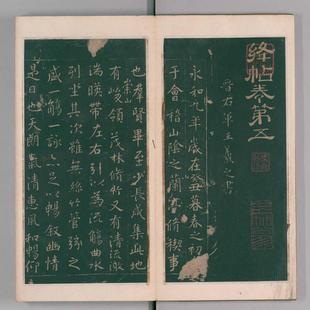 絳帖卷第五
晉右軍王羲之書
永和九年歲在癸丑暮春之初
于會稽山陰之蘭亭脩稧事
也羣賢畢至少長咸集此地
有崇山峻領茂林脩竹又有清流激
湍暎帶左右引以為流觴曲水
列坐其次雖無絲竹管弦之
盛一觴一詠亦足以暢敘幽情
是日也天朗氣清惠風和暢仰